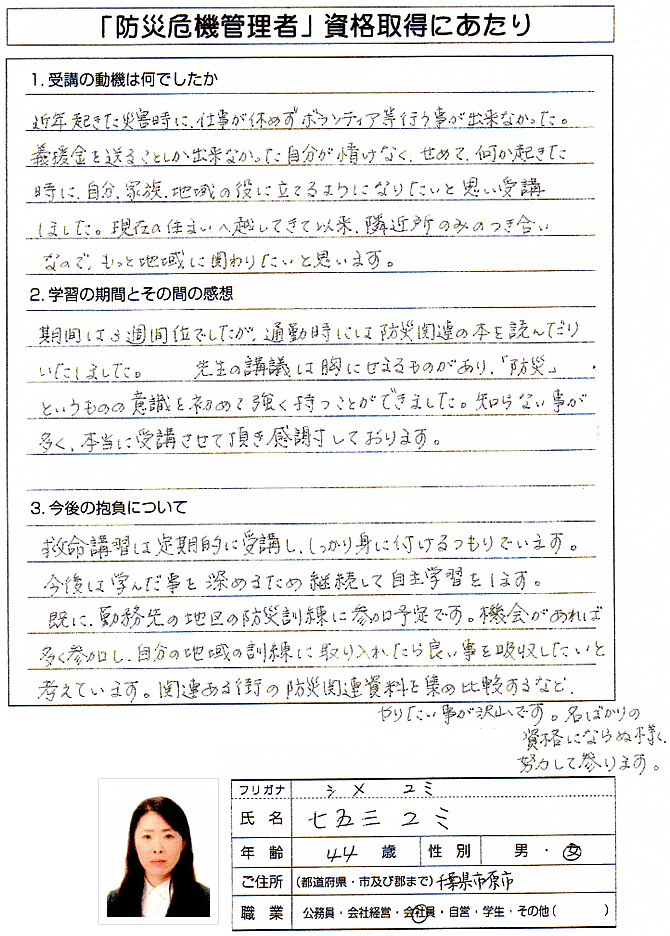 「防災危機管理者」資格取得にあたり
1. 受講の動機は何でしたか
近年起きた災害時に、仕事が休めずボランティア等行う事が出来なかった。
義援金を送ることしか出来なかった自分が情けなく、せめて、何か起きた
時に、自分、家族、地域の役に立てるようになりたいと思い受講
しました。現在の住まいへ越してきて以来、隣近所のみのつき合い
なので、もっと地域に関わりたいと思います。
2. 学習の期間とその間の感想
期間は3週間位でしたが、通勤時には防災関連の本を読んだり
いたしました。 先生の講議は胸にせまるものがあり、「防災」
というものの意識を初めて強く持つことができました。知らない事が
多く、本当に受講させて頂き感謝しております。
3. 今後の抱負について
救命講習は定期的に受講し、しっかり身に付けるつもりでいます。
今後は学んだ事を深めるため継続して自主学習をします。
既に、勤務先の地区の防災訓練に参加予定です。機会があれば
多く参加し、自分の地域の訓練に取り入れたら良い事を吸収したいと
考えています。関連ある街の防災関連資料を集め比較するなど、
やりたい事が沢山です。名ばかりの
資格にならぬ様、
努力して参ります。
フリガナ シメ ユミ
氏名 七五三 ユミ
年齢 44歳 性別 男・女
ご住所 (都道府県・市及び郡まで) 千葉県市原市
職業 公務員・会社経営・会社員・自営・学生・その他( )